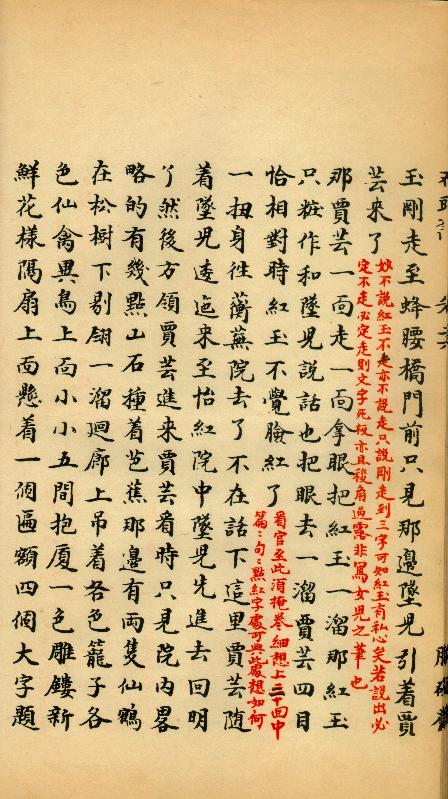 玉剛走至蜂腰橋門前只見那邊墜兒引着賈
芸來了
妙不說紅玉不走亦不說走只說剛走到三字可知紅玉有私心矣若說出必
定不走必定走則文字死板亦且稜角過露非寫女兒之筆也
那賈芸一面走一面拿眼把紅玉一溜那紅玉
只粧作和墜兒說話也把眼去一溜賈芸四目
恰相對時紅玉不覺臉紅了
看官至此湏掩卷細想上三十回中
篇〻句〻點紅字處可與此處想如何
一扭身徃蘅蕪院去了不在話下這里賈芸随
着墜兒逶迤来至怡紅院中墜兒先進去回明
了然後方領賈芸進来賈芸看時只見院內畧
略的有幾點山石種着芭蕉那邊有兩隻仙鶴
在松樹下剔翎一溜迴廊上吊着各色籠子各
色仙禽異鳥上面小小五間抱厦一色雕鏤新
鮮花樣隔扇上面懸着一個匾額四個大字題